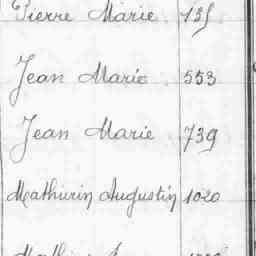 Pierre Marie 135
Jean Marie 553
Jean Marie 739
Mathurin Augustin 1020